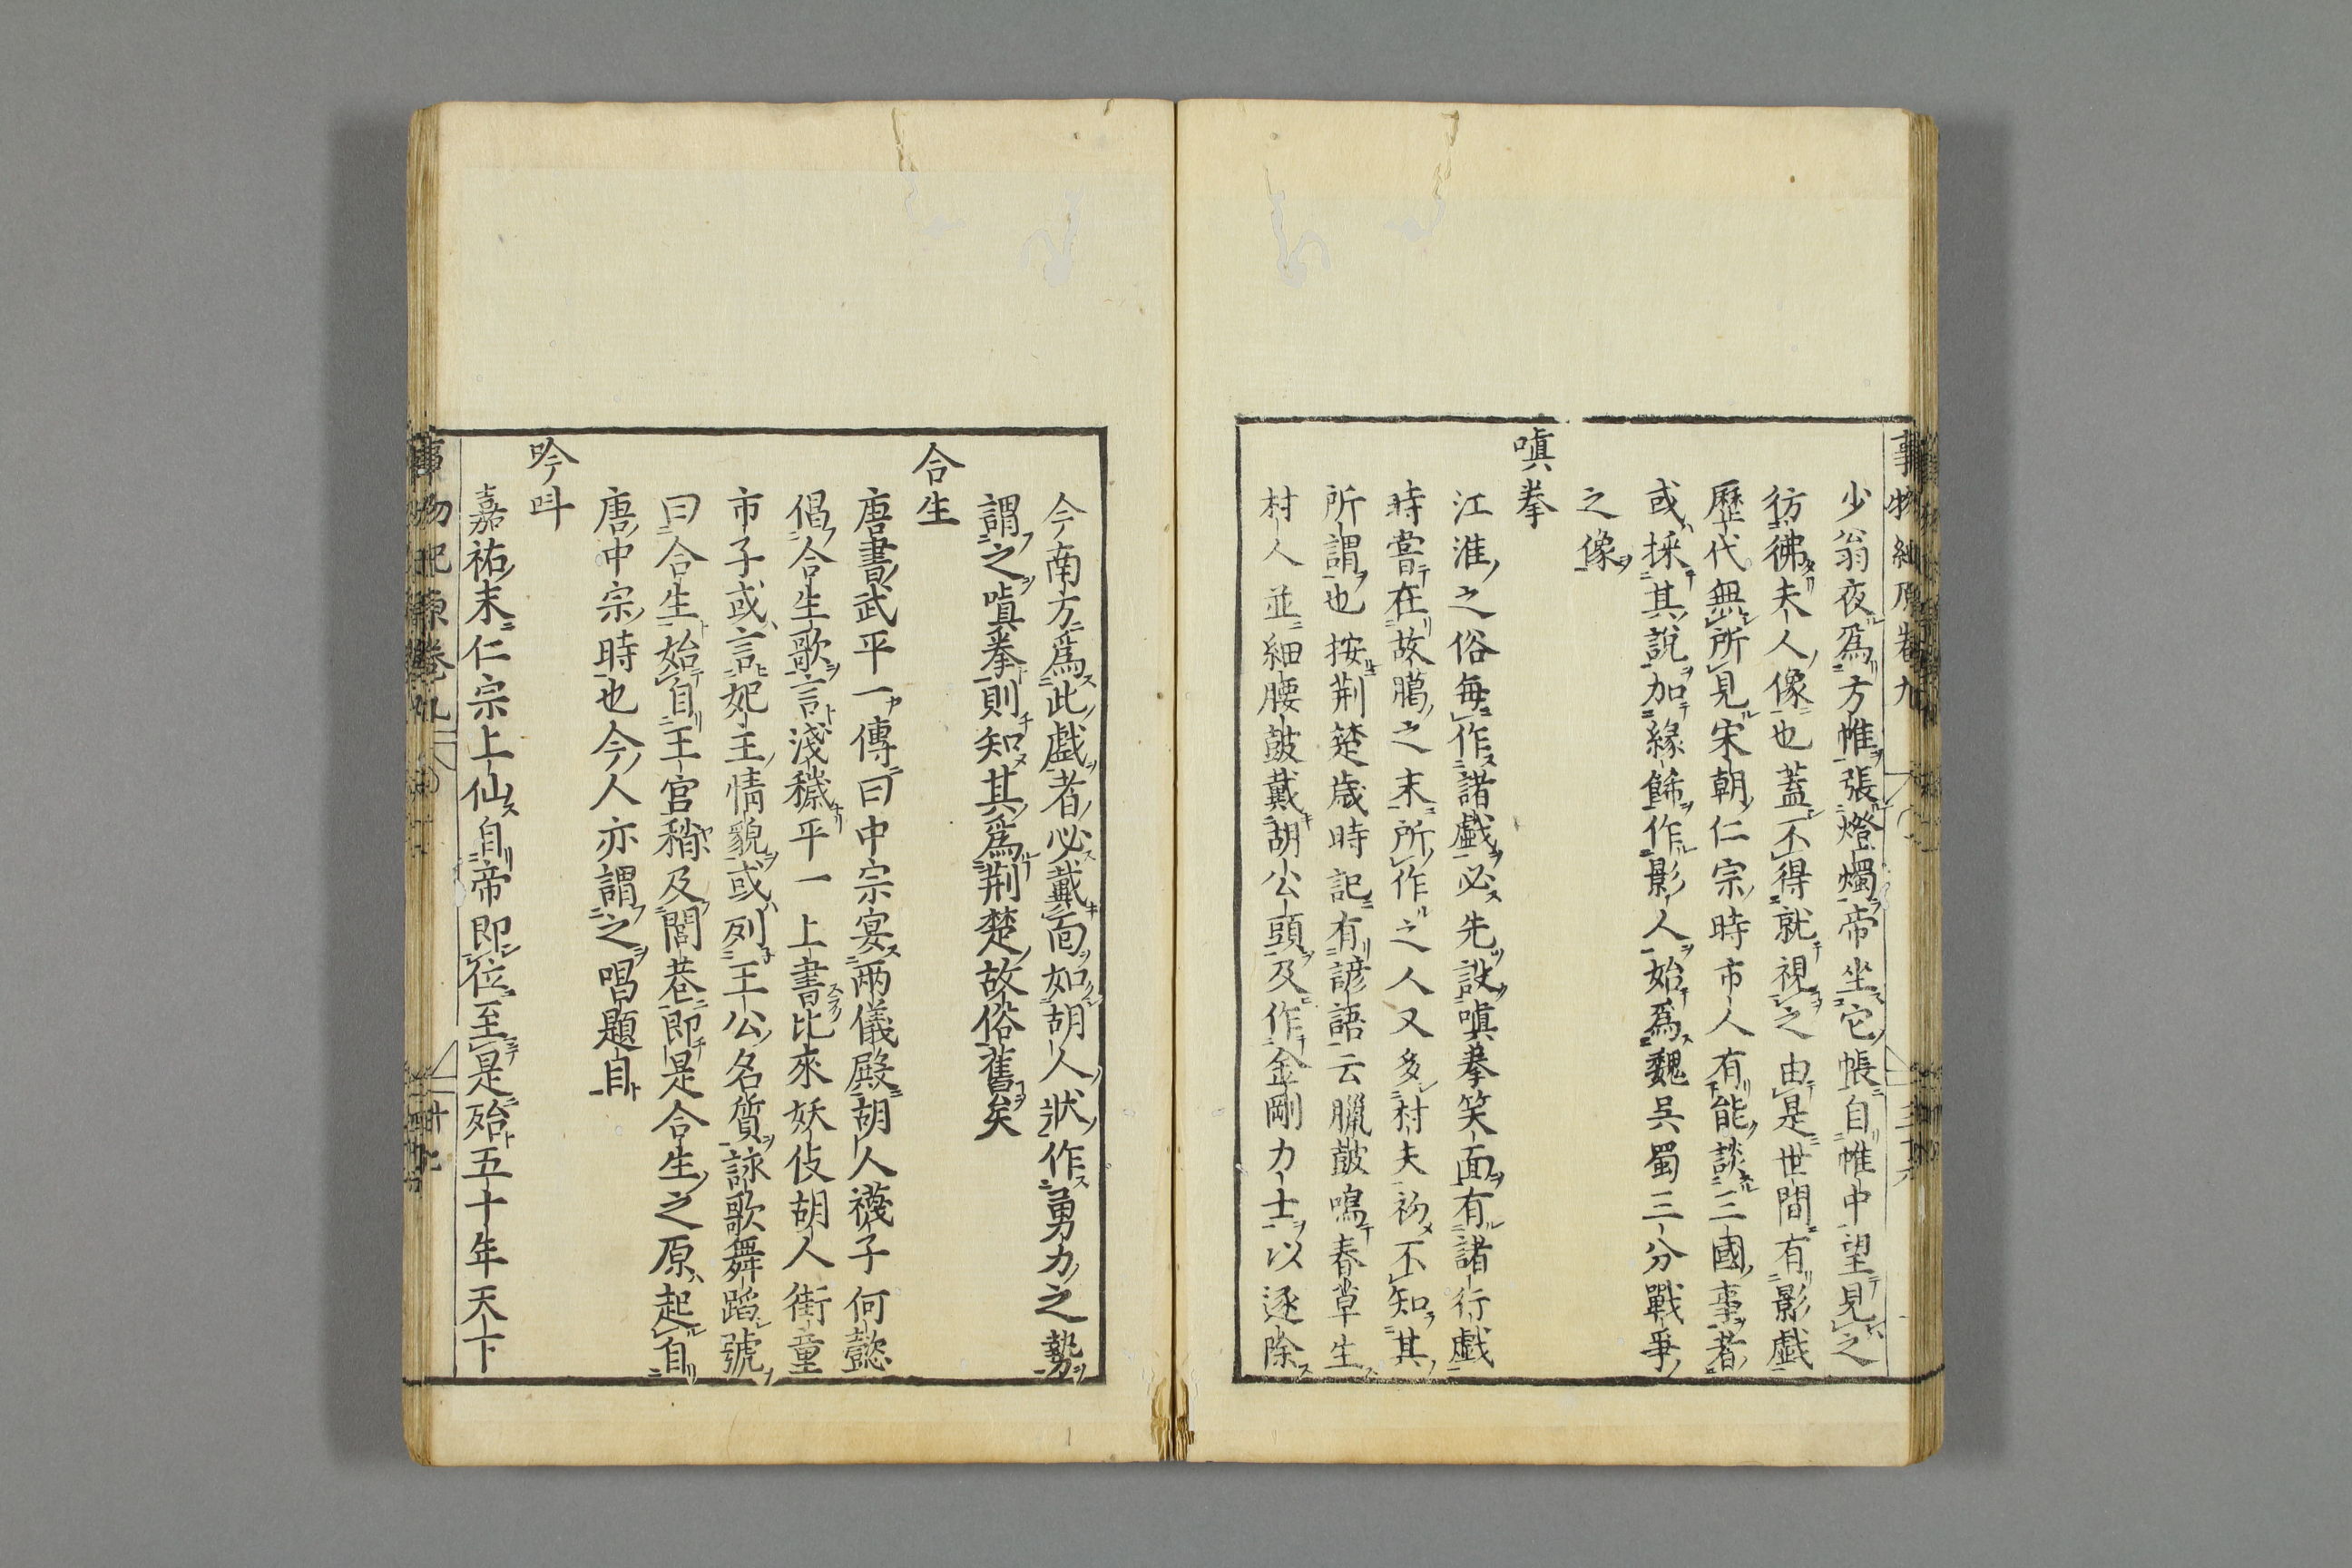 事物紀原卷九
少翁夜爲方帷張燈燭帝坐它帳自帷中望見之
彷彿夫人像也蓋不得就視之由是世間有影戲
歷代無所見宋朝仁宗時市人有能談三國事者
或採其說加緣飾作影人始爲魏吳蜀三分戰爭
之像
嗔拳
江淮之俗每作諸戲必先設嗔拳笑面有諸行戲
時嘗在故臈之末所作之人又多村夫初不知其
所謂也按荆楚歲時記有諺語云臘皷鳴春草生
村人並細腰皷戴胡公頭及作金剛力士以逐除
今南方爲此戲者必戴面如胡人狀作勇力之勢
謂之嗔拳則知其爲荆楚故俗舊矣
合生
唐書武平一傳曰中宗宴兩儀殿胡人襪子何懿
倡合生歌言淺穢平一上書比來妖伎胡人街童
市子或言妃主情貌或列王公名質詠歌舞蹈號
曰合生始自王宮稍及閭巷即是合生之原起自
唐中宗時也今人亦謂之唱題目
吟叫
嘉祐末仁宗上仙自帝即位至是殆五十年天下
事物紀原卷九